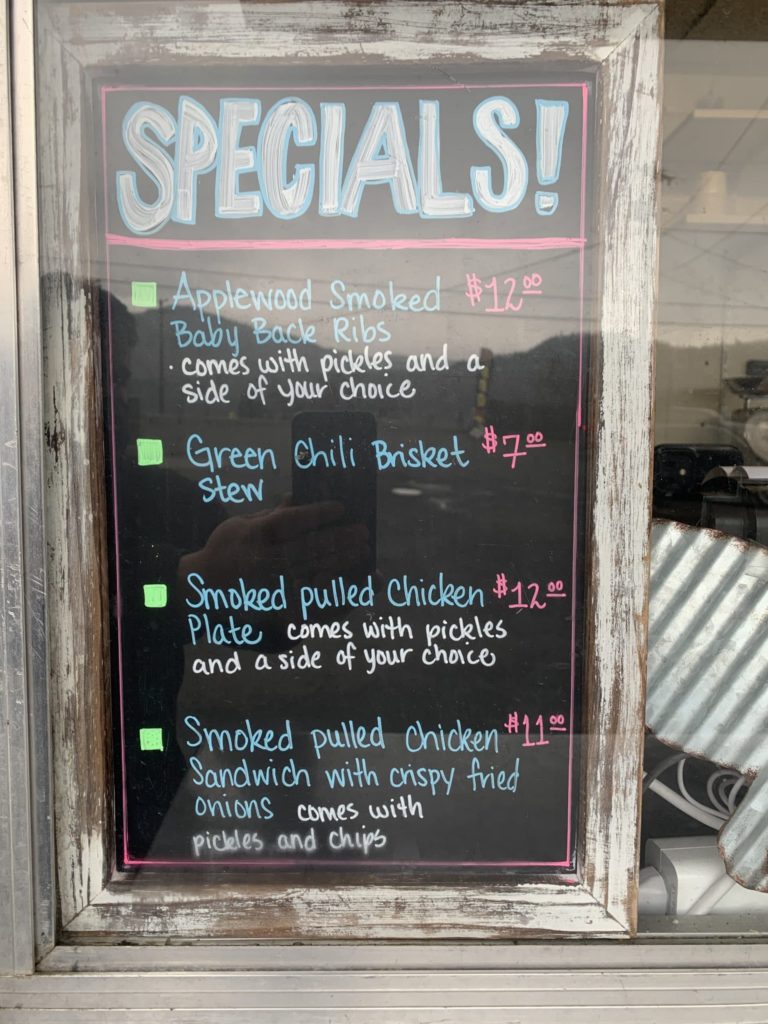 SPECIALS!
Applewood Smoked $12.00
Baby Back Ribs
· comes with pickles and a
side of your choice
Green Chili Brisket $7.00
Stew
Smoked pulled Chicken $12.00
Plate comes with pickles
and a side of your choice
Smoked pulled Chicken $11.00
Sandwich with crispy fried
onions comes with
pickles and chips